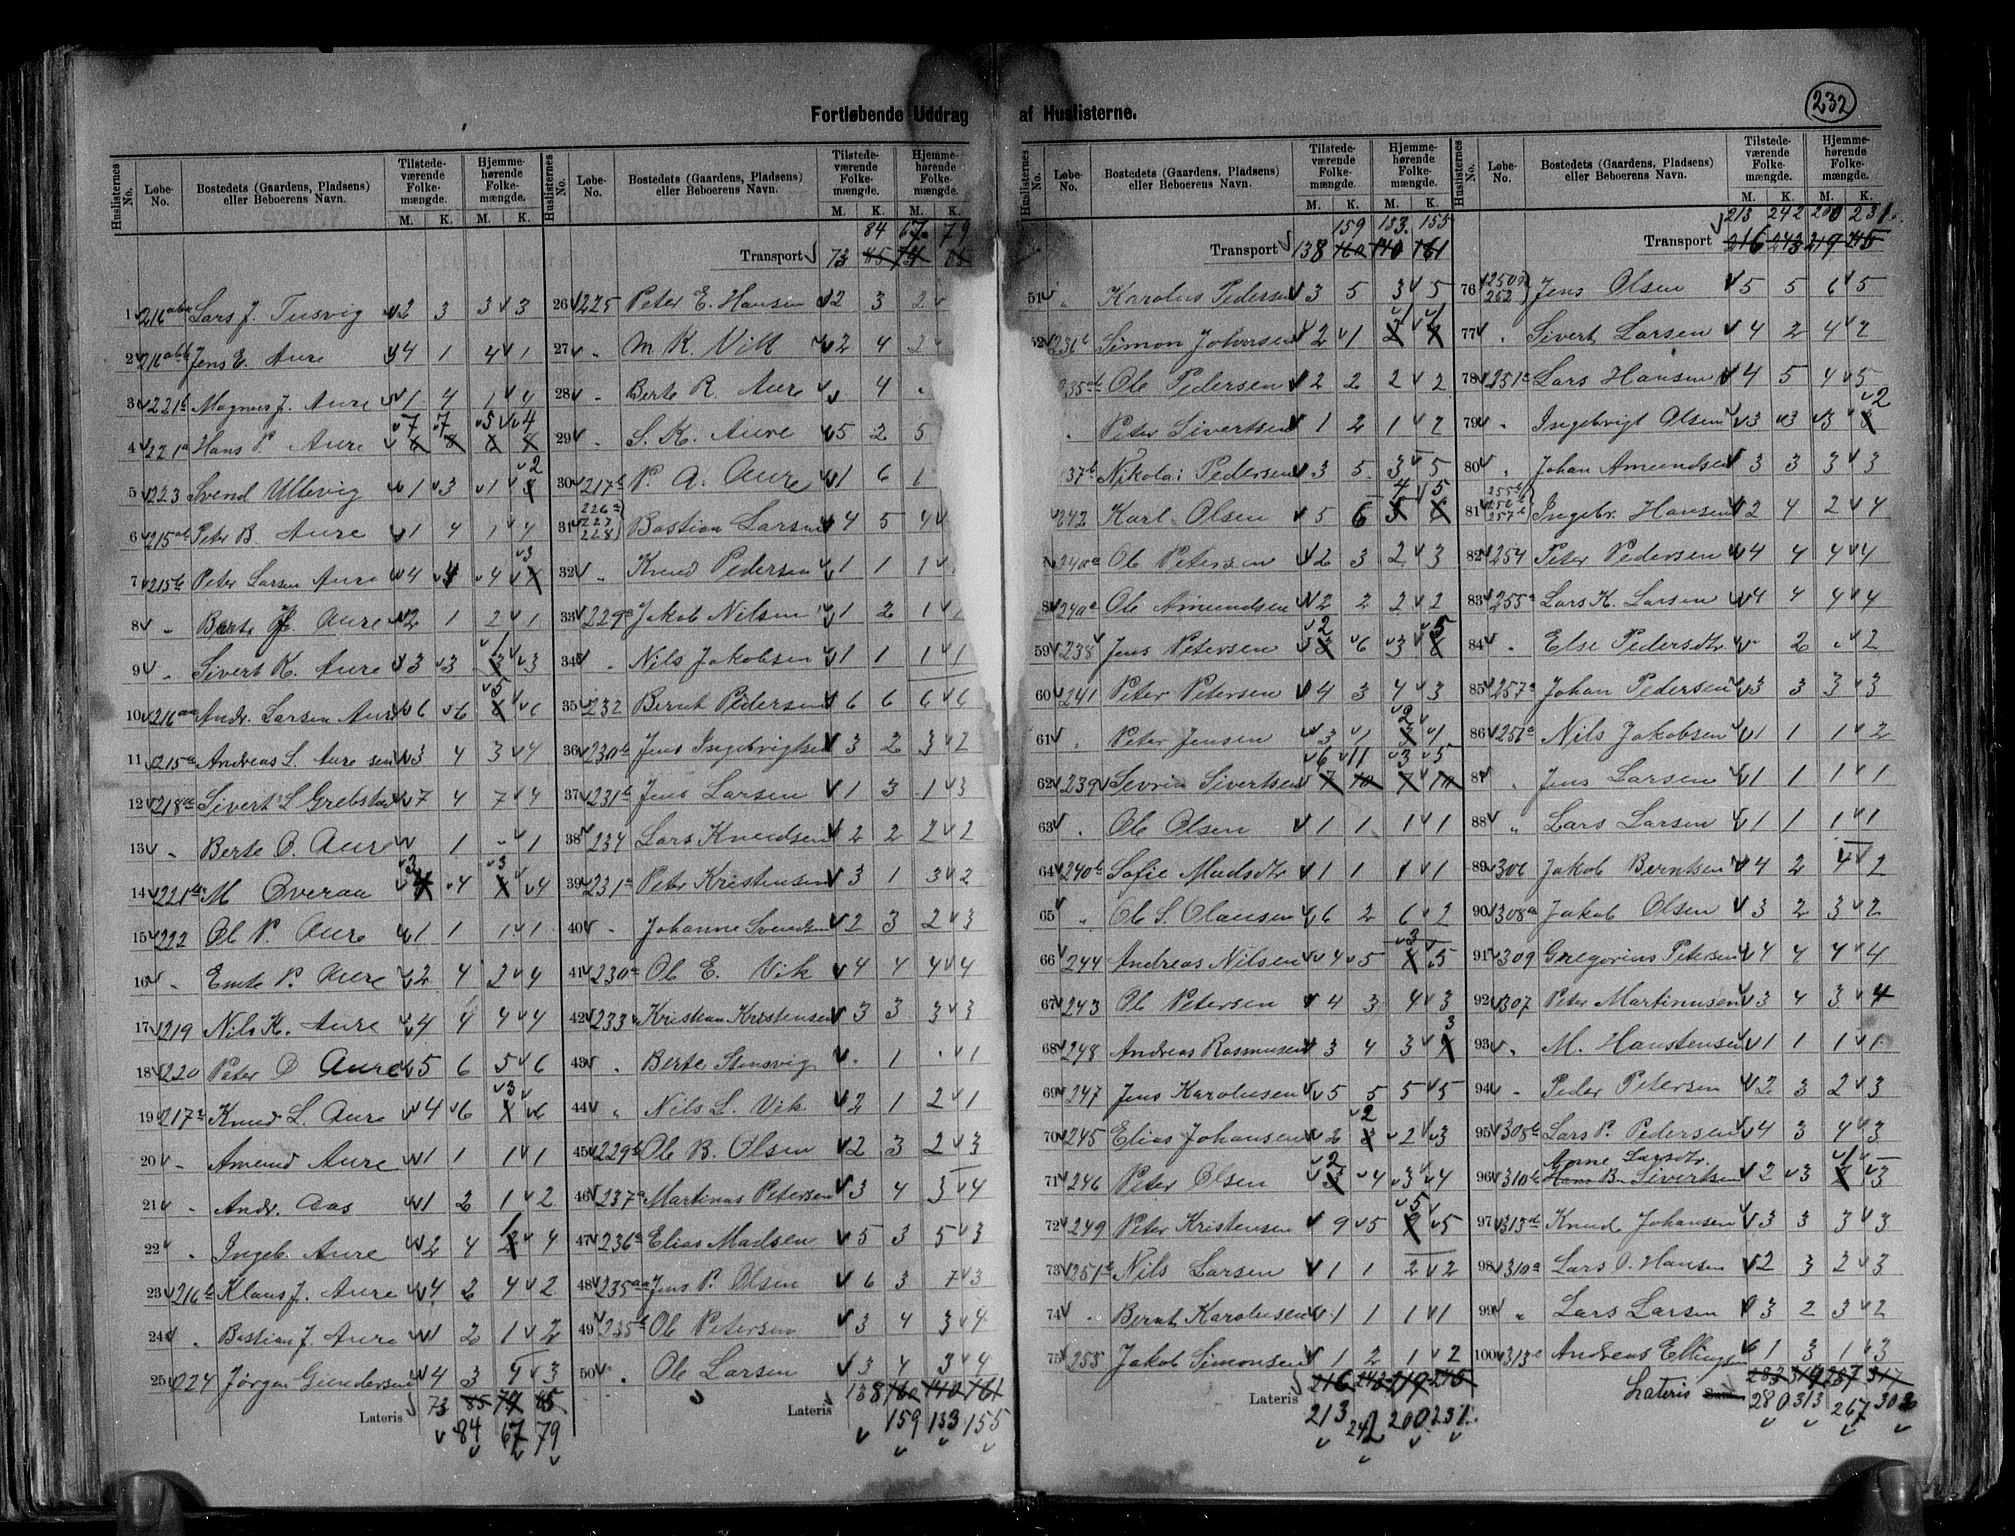 232
Fortløbende Uddrag af Huslisterne.
Huslisternes No. Løbe-No. Bostedets (Gaardens, Pladsens) eller Beboerens Navn. Tilstedeværende Folkemængde. Hjemmehørende Folkemængde.
M. K. M. K.
1 216 Lars J. 2 3 3 3
2 216 Jens E. Aure 4 1 4 1
3 221b Magnus J. Aure 1 4 1 4
4 221a Hans P. Aure 7 7 5 4
5 223 Svend Ullevig 1 3 1 2
6 215 Peter B. Aure 1 4 1 4
7 215b Peter Larsen Aure 4 4 4 3
8 " Berte Aure 2 1 2 1
9 " Sivert K. Aure 3 3 1 3
10 216 Andr. Larsen Aure 6 6 5 6
11 215a Andreas L. Aure 3 4 3 4
12 218 Sivert L Grebstad 7 4 7 4
13 " Berte O. Aure 1 " 1
14 221 M Overaa 3 4 3 4
15 222 Ol P. Aure 1 1 1 1
16 " P. Aure 2 4 2 4
17 219 Nils K. Aure 4 4 4 4
18 220 Peter O Aure 5 6 5 6
19 217a Knud L. Aure 4 6 3 6
20 " Amund Aure 1 1 1 1
21 " Andr. Aas 1 2 1 2
22 " Ingeb. Aure 2 4 1 4
23 216b Klaus J. Aure 4 2 4 2
24 " Bastian J. Aure 1 2 1 2
25 224 Jørgen Gundersen 4 3 3
Lateris 73 85 79 85
84 67 79
84 67 79
Transport 73 85 85
26 225 Peter E. Hansen 2 3 2
27 " M K. Vik 2 4 2
28 " Berte R. Aure 4
29 " S. K. Aure 5 2 5
30 217b P. A. Aure 1 6 1
31 226a 227 228 Bastian Larsen 4 5 4
32 " Knud Pedersen 1 1 1
33 229a Jakob Nilsen 1 2 1
34 " Nils Jakobsen 1 1 1 1
35 232 Bernt Pedersen 6 6 6 6
36 230b Jens Ingebrigtsen 3 2 3 2
37 231b Jens Larsen 1 3 1 3
38 234 Lars Knudsen 2 2 2 2
39 231a Peter Kristensen 3 1 3 2
40 " Johanne Svendsen 2 3 2 3
41 230a Ol E. Vik 4 4 4 4
42 233 Kristian Kristensen 3 3 3 3
43 " Berte Stensvig 1 1
44 " Nils L. Vik 2 1 2 1
45 229b Ol B. Olsen 2 3 2 3
46 237a Martinus Petersen 3 4 3 4
47 236a Elias Madsen 5 3 5 3
48 235aa Jens P. Olsen 6 3 7 3
49 235b Ol Petersen 3 4 3 4
50 " Ole Larsen 3 4 3 4
Lateris 138 160 140 161
159 133 155
159 133 155
Transport 138 160 140 161
51 " Karolus Pedersen 3 5 3 5
52 236b Simon Johansen 2 1 1 1
235 Ole Pedersen 2 2 2 2
" Peter Sivertsen 1 2 1 2
37b Nikolai Pedersen 3 5 3 5
242 Karl Olsen 5 6 4 5
240a Ol Petersen 2 3 2 3
240a Ole Amundsen 2 2 2 2
59 238 Jens Petersen 2 6 3 5
60 241 Peter Petersen 4 3 4 3
61 " Peter Jensen 3 1 2 1
62 239 Sevrin Sivertsen 6 11 3 5
63 " Ole Olsen 1 1 1 1
64 240b Sofie Madsdtr 1 1 1 1
65 " Ol S. Olausen 6 2 6 2
66 244 Andreas Nilsen 4 5 3 5
67 243 Ol Petersen 4 3 4 3
68 248 Andreas Rasmusen 3 4 3 3
69 247 Jens Karolusen 5 5 5 5
70 245 Elias Johansen 2 2 2 3
71 246 Peter Olsen 2 4 3 4
72 249 Peter Kristensen 9 5 5 5
73 251b Nils Larsen 1 1 2 2
74 " Bernt Karolusen 1 1 1 1
75 253 Jakob Simonsen 1 2 1 2
Lateris 216 243 219 245
213 242 200 231
213 242 200 231.
Transport 216 243 219 245
76 250 252 Jens Olsen 5 5 6 5
77 " Sivert Larsen 4 2 4 2
78 251a Lars Hansen 4 5 4 5
79 " Ingebrigt Olsen 3 3 3 2
80 " Johan Amundsen 3 3 3 3
81 255b 256b 257b Ingebr. Hansen 2 4 2 4
82 254 Peter Pedersen 4 4 4 4
83 255a Lars K. Larsen 4 4 4 4
84 " Else Pedersdtr 2 " 2
85 257a Johan Pedersen 3 3 3 3
86 256a Nils Jakobsen 1 1 1 2
87 " Jens Larsen 1 1 1 1
88 " Lars Larsen 1 1 1 1
89 306 Jakob Berntsen 4 2 4 2
90 308a Jakob Olsen 3 2 3 2
91 309 Gregorius Petersen 4 4 4 4
92 307 Peter Martinusen 3 4 3 4
93 " M. Hanstensen 1 1 1 1
94 " Peder Petersen 2 3 2 3
95 308b Lars P. Pedersen 4 3 4 3
Anne Larsdtr.
96 310b Hans B. Sivertsen 2 3 1 3
97 313d Knud Johansen 3 3 3 3
98 310a Lars O. Hansen 2 3 2 3
99 " Lars Larsen 3 2 3 2
100 313c Andreas Ellingsen 1 3 1 3
283 319 287 317
Lateris 280 313 267 302